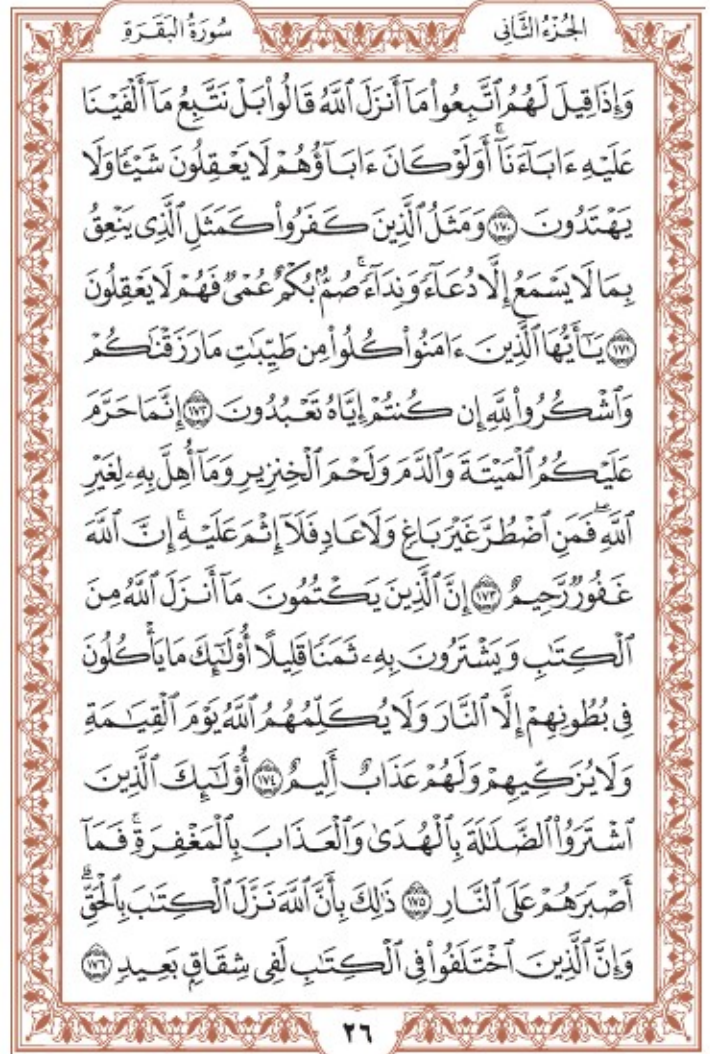 سُورَةُ الْبَقَرَةِ
الْجُزْءُ الثَّانِي
وَإِذَا قِيلَ لَهُمُ ٱتَّبِعُوا۟ مَآ أَنزَلَ ٱللَّهُ قَالُوا۟ بَلْ نَتَّبِعُ مَآ أَلْفَيْنَا
عَلَيْهِ ءَابَآءَنَآ ۗ أَوَلَوْ كَانَ ءَابَآؤُهُمْ لَا يَعْقِلُونَ شَيْـًٔا وَلَا
يَهْتَدُونَ ١٧٠ وَمَثَلُ ٱلَّذِينَ كَفَرُوا۟ كَمَثَلِ ٱلَّذِى يَنْعِقُ
بِمَا لَا يَسْمَعُ إِلَّا دُعَآءً وَنِدَآءً ۚ صُمٌّۢ بُكْمٌ عُمْىٌ فَهُمْ لَا يَعْقِلُونَ
١٧١ يَـٰٓأَيُّهَا ٱلَّذِينَ ءَامَنُوا۟ كُلُوا۟ مِن طَيِّبَـٰتِ مَا رَزَقْنَـٰكُمْ
وَٱشْكُرُوا۟ لِلَّهِ إِن كُنتُمْ إِيَّاهُ تَعْبُدُونَ ١٧٢ إِنَّمَا حَرَّمَ
عَلَيْكُمُ ٱلْمَيْتَةَ وَٱلدَّمَ وَلَحْمَ ٱلْخِنزِيرِ وَمَآ أُهِلَّ بِهِۦ لِغَيْرِ
ٱللَّهِ ۖ فَمَنِ ٱضْطُرَّ غَيْرَ بَاغٍ وَلَا عَادٍ فَلَآ إِثْمَ عَلَيْهِ ۚ إِنَّ ٱللَّهَ
غَفُورٌ رَّحِيمٌ ١٧٣ إِنَّ ٱلَّذِينَ يَكْتُمُونَ مَآ أَنزَلَ ٱللَّهُ مِنَ
ٱلْكِتَـٰبِ وَيَشْتَرُونَ بِهِۦ ثَمَنًا قَلِيلًا أُو۟لَـٰٓئِكَ مَا يَأْكُلُونَ
فِى بُطُونِهِمْ إِلَّا ٱلنَّارَ وَلَا يُكَلِّمُهُمُ ٱللَّهُ يَوْمَ ٱلْقِيَـٰمَةِ
وَلَا يُزَكِّيهِمْ وَلَهُمْ عَذَابٌ أَلِيمٌ ١٧٤ أُو۟لَـٰٓئِكَ ٱلَّذِينَ
ٱشْتَرَوُا۟ ٱلضَّلَـٰلَةَ بِٱلْهُدَىٰ وَٱلْعَذَابَ بِٱلْمَغْفِرَةِ ۚ فَمَآ
أَصْبَرَهُمْ عَلَى ٱلنَّارِ ١٧٥ ذَٰلِكَ بِأَنَّ ٱللَّهَ نَزَّلَ ٱلْكِتَـٰبَ بِٱلْحَقِّ ۗ
وَإِنَّ ٱلَّذِينَ ٱخْتَلَفُوا۟ فِى ٱلْكِتَـٰبِ لَفِى شِقَاقٍۭ بَعِيدٍ ١٧٦
٢٦